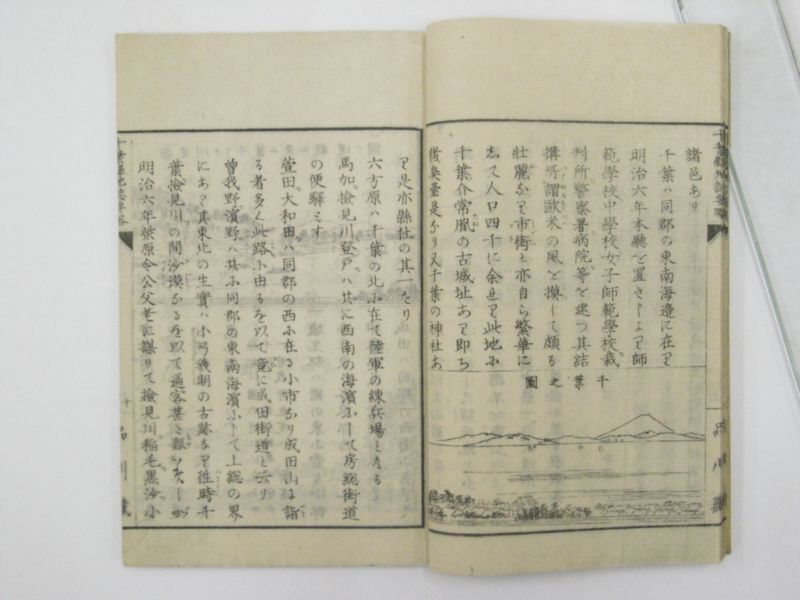 諸邑あり
千葉ハ同郡の東南海邊に在り
明治六年本廳を置きしより師
範學校中學校女子師範學校裁
判所警察署病院等を建つ其結
構所謂歐米の風を摸して頗る
壯麗なり市街も亦自ら繁華に
して人口四千に余れり此地ふ
千葉介常胤の古城址あり即ち
猪鼻臺是なり又千葉の神社あ
千葉之圖
り是亦縣社の其一なり
六方原ハ千葉の北小在て陸軍の練兵場となる
馬加檢見川登戸ハ共に西南の海濱小して房総街道
の便驛とす
萱田大和田ハ同郡の西小在る小市なり成田山に詣
る者多く此路小由るを以て竟に成田街道と云り
曽我野濱野ハ共小同郡の東南海濱小して上総の界
にあり其東北の生實ハ小弓義明の古跡なり徃時千
葉檢見川の間沙漠なるを以て通客甚と艱めりしが
明治六年柴原令公父老に謀りて檢見川稲毛黒沙小
十